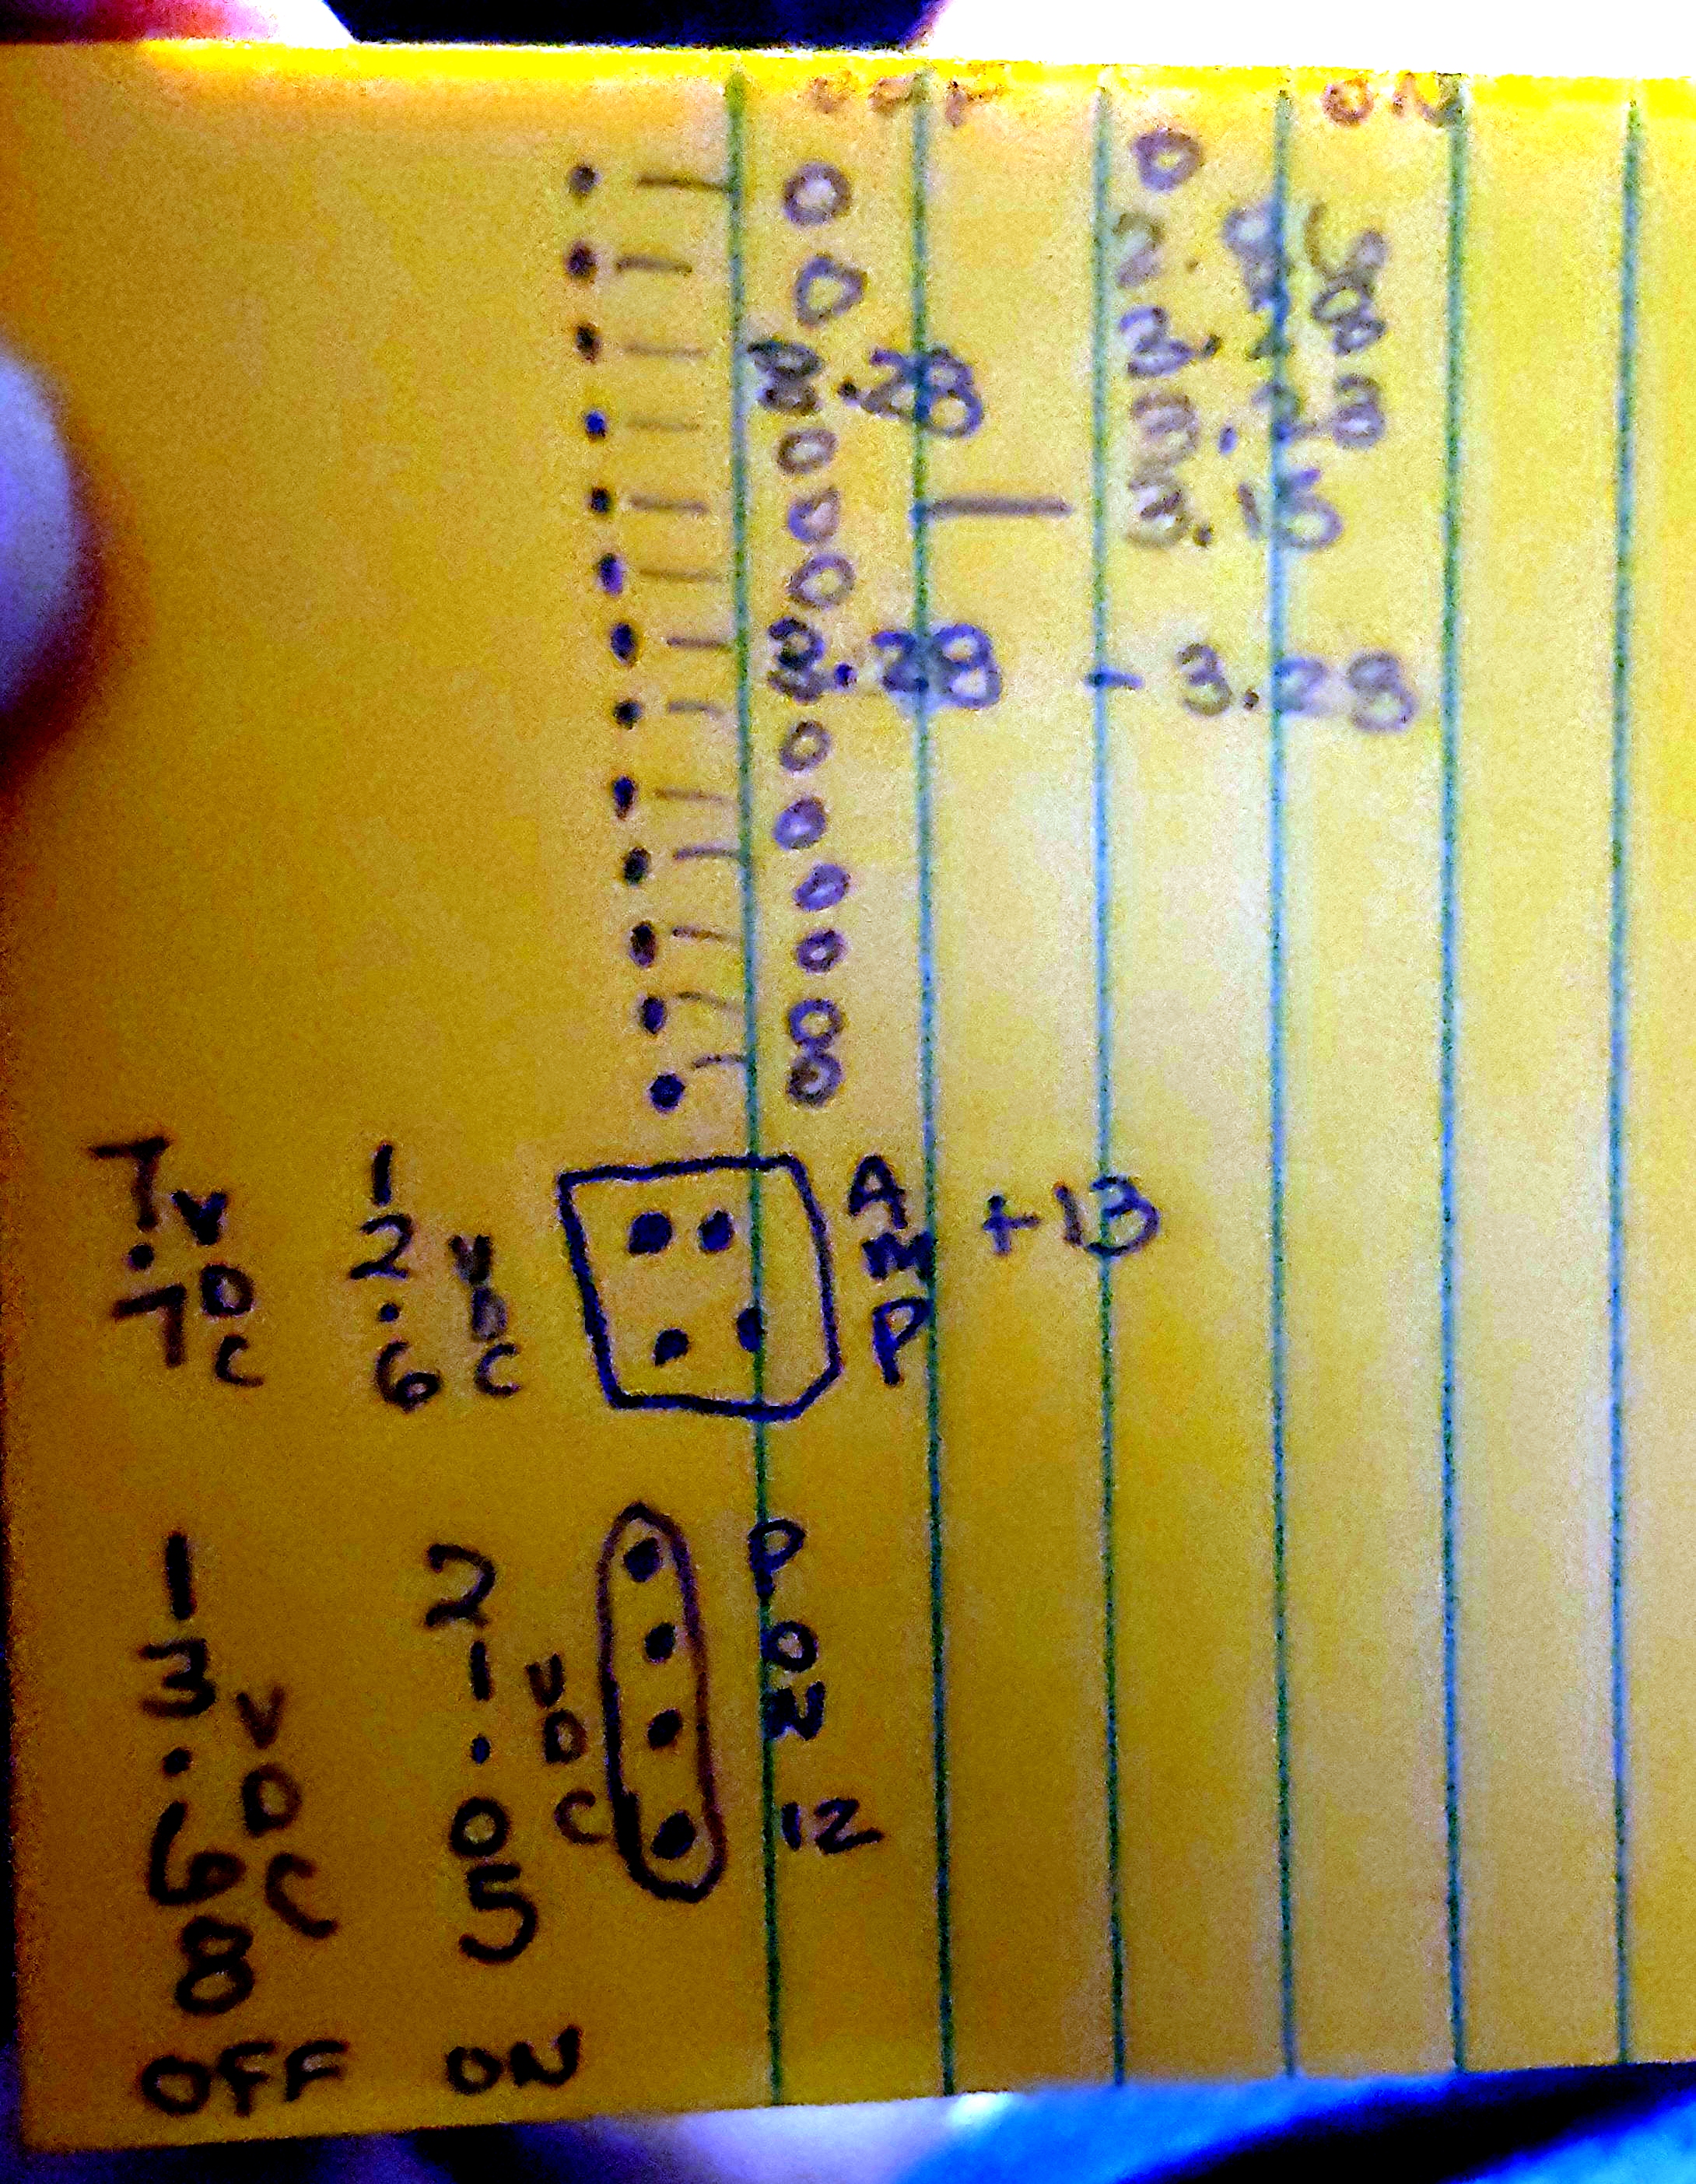 OFF ON
0 0
0 2.
3.28
0
0 3.15
0
3.28 - 3.28
0
0
0
0
0
0
7.7 VDC 12.6 VDC AMP +13
13.68 VDC 21.05 VDC PON 12
OFF ON